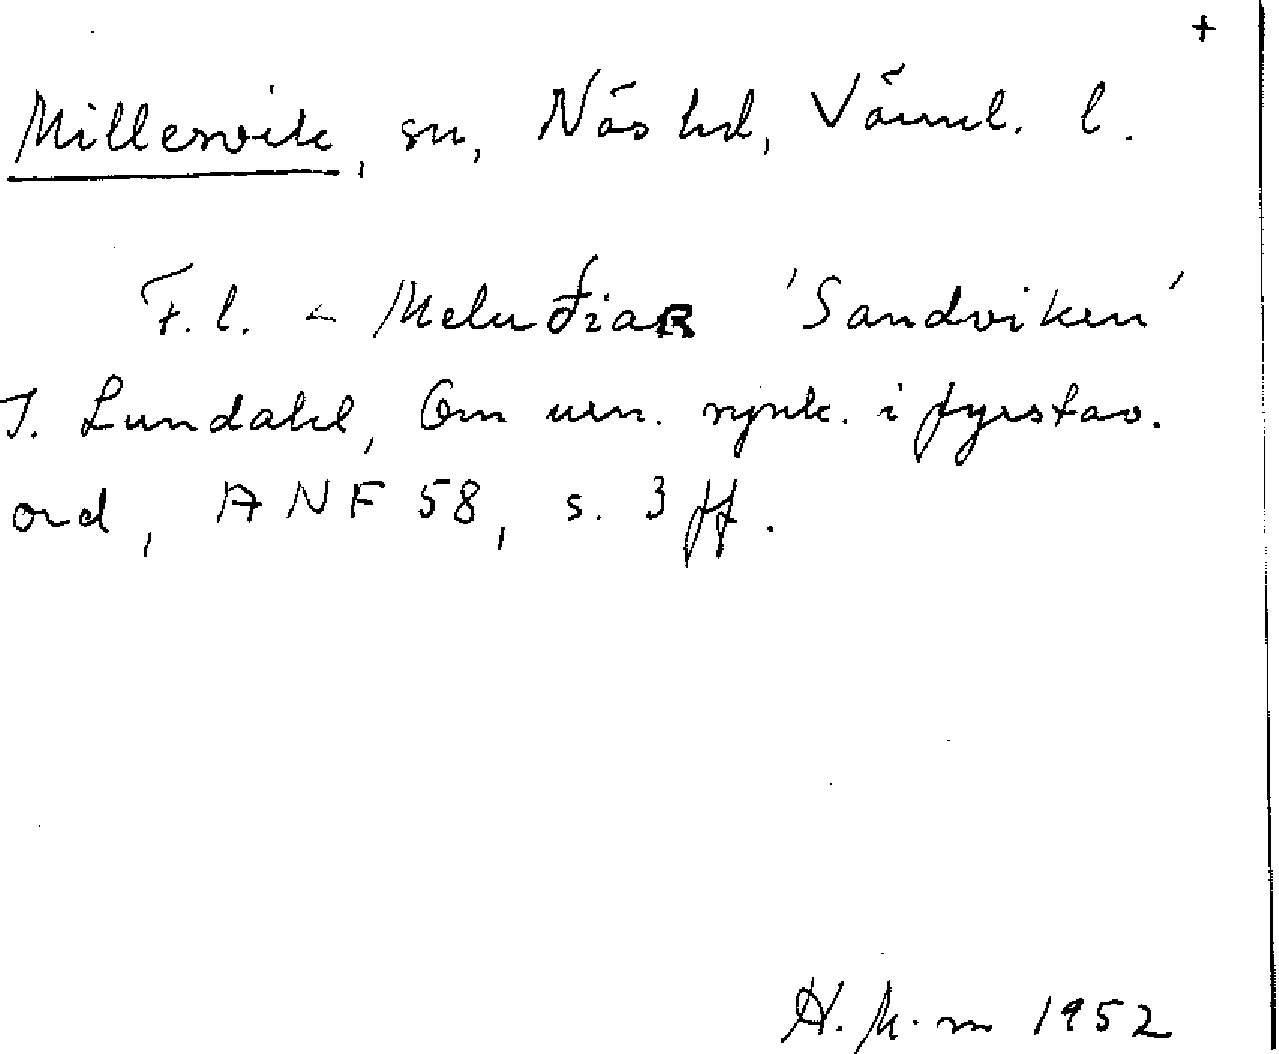 +
Millesvik, sn, Näs hd, Värml. l.
F.l. < MeluðiaR 'Sandviken'
I. Lundahl, Om urn. synk. i fyrstav.
ord, ANF 58, s. 3 ff.
H. k. m 1952